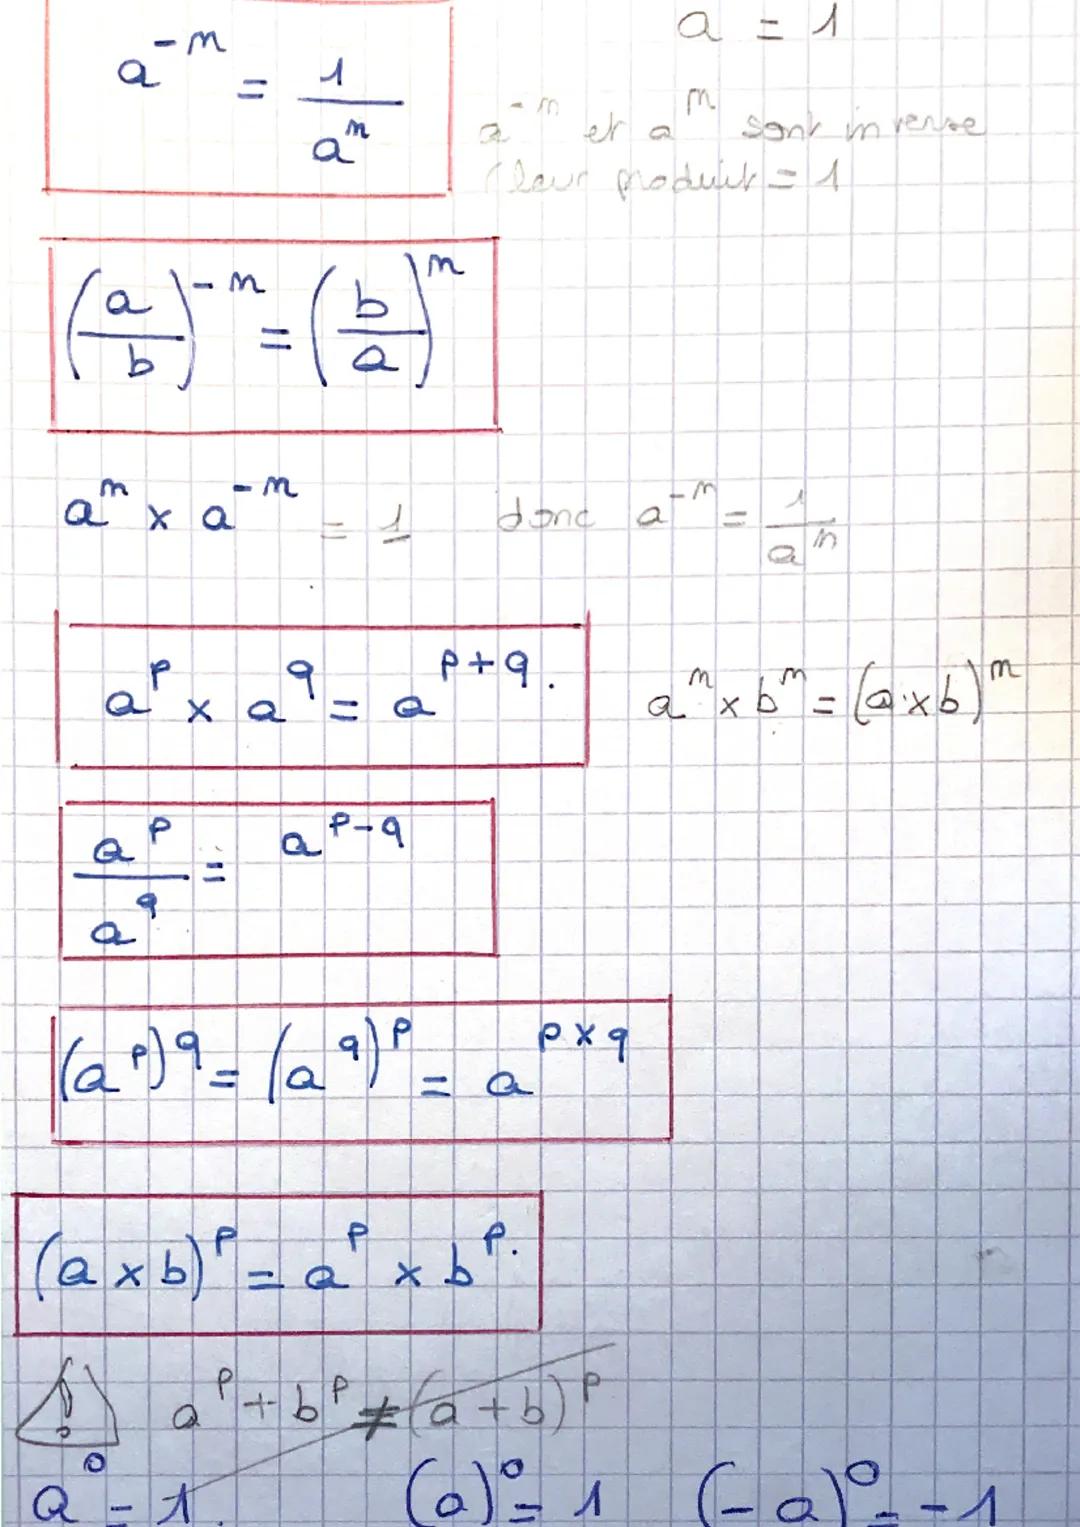 a = 1
a⁻ⁿ = 1/aⁿ
a⁻ⁿ et aⁿ sont inverse
(leur produit = 1
(a/b)⁻ⁿ = (b/a)ⁿ
aⁿ × a⁻ⁿ = 1 donc a⁻ⁿ = 1/aⁿ
a^p × a^q = a^(p+q). aⁿ × bⁿ = (a×b)ⁿ
a^p/a^q = a^(p-q)
(a^p)^q = (a^q)^p = a^(p×q)
(a×b)^p = a^p × b^p.
! a^p + b^p ≠ (a+b)^p
a⁰ = 1. (a)⁰ = 1 (-a)⁰ = -1